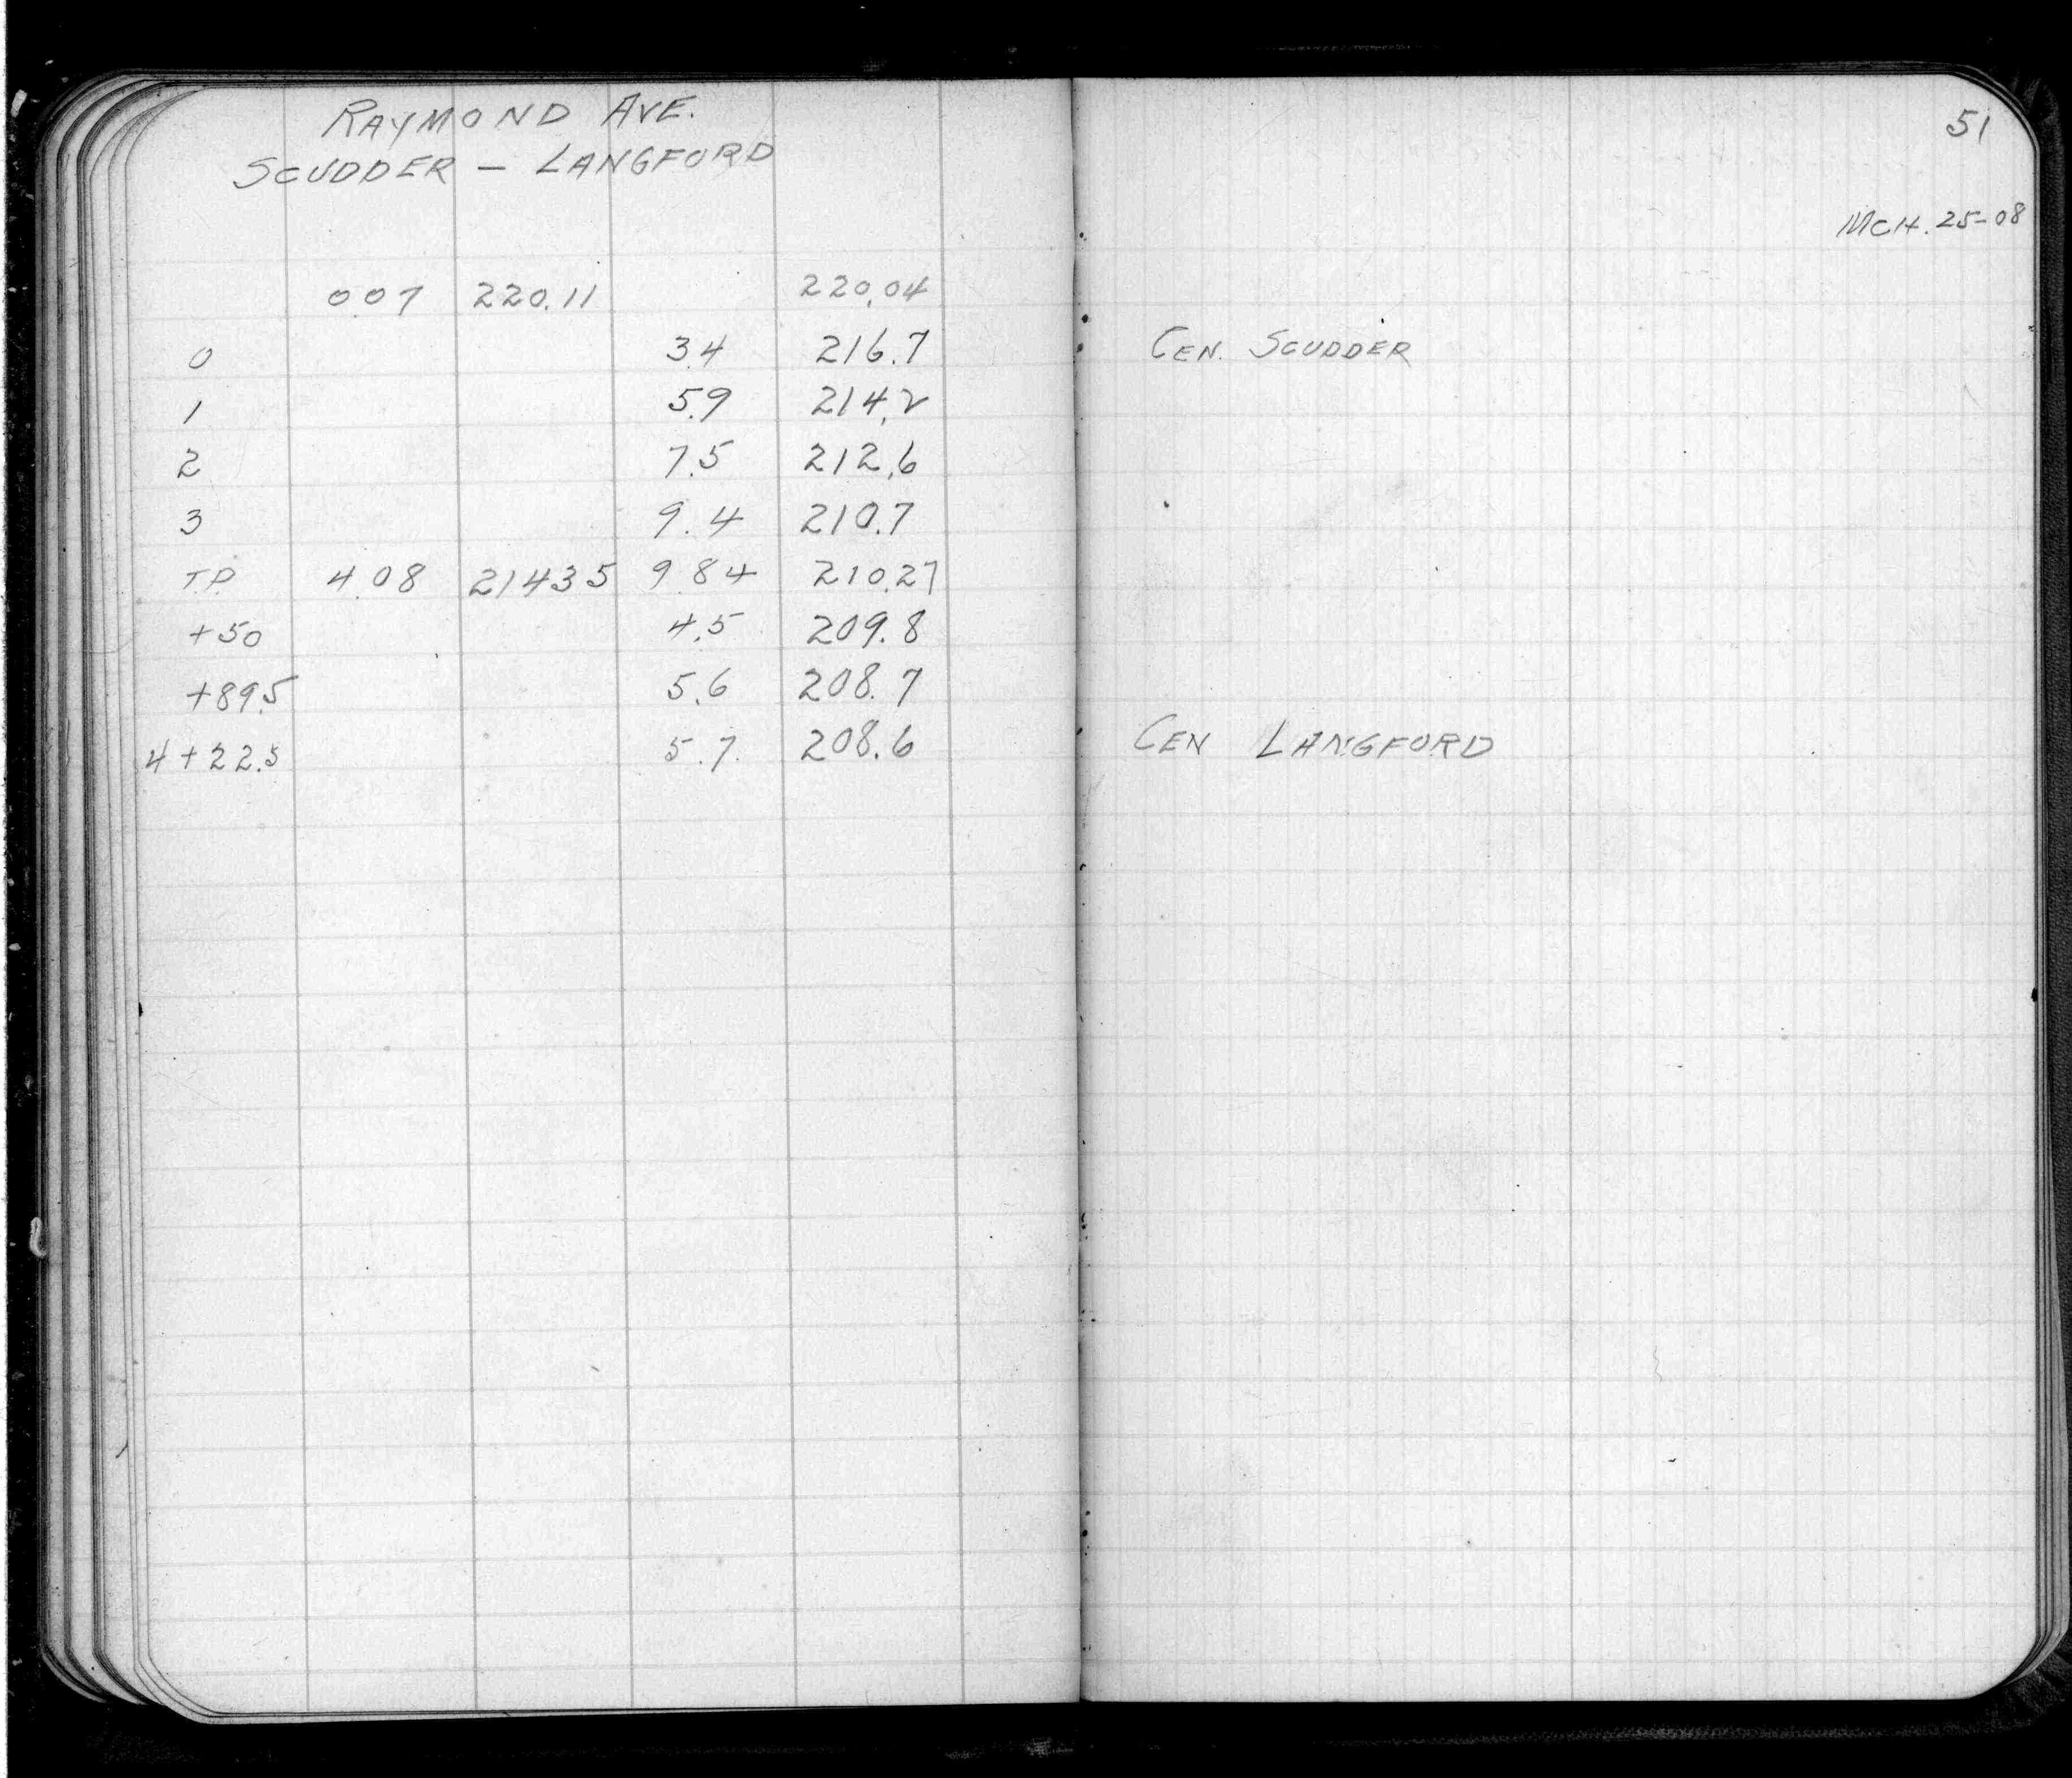 RAYMOND AVE.
SCUDDER - LANGFORD
51
MCH. 25-08
0.07 220.11 220.04
0 3.4 216.7 CEN. SCUDDER
1 5.9 214.2
2 7.5 212.6
3 9.4 210.7
T.P. 4.08 214.35 9.84 210.27
+50 4.5 209.8
+89.5 5.6 208.7
4+22.5 5.7 208.6 CEN LANGFORD